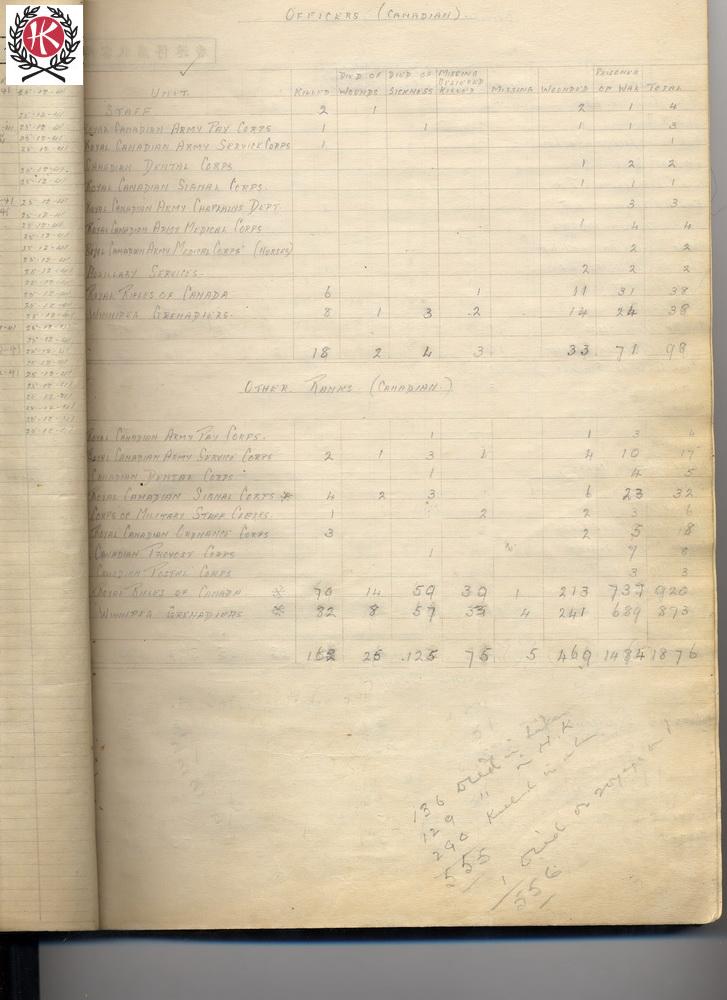 OFFICERS (CANADIAN)
UNIT KILLED DIED OF WOUNDS DIED OF SICKNESS MISSING BELIEVED KILLED MISSING WOUNDED PRISONER OF WAR TOTAL
STAFF 2 1 2 1 4
ROYAL CANADIAN ARMY PAY CORPS 1 1 1 1 3
ROYAL CANADIAN ARMY SERVICE CORPS 1 1
CANADIAN DENTAL CORPS 1 2 2
ROYAL CANADIAN SIGNAL CORPS. 1 1 1
ROYAL CANADIAN ARMY CHAPLAINS DEPT. 3 3
ROYAL CANADIAN ARMY MEDICAL CORPS 1 4 4
ROYAL CANADIAN ARMY MEDICAL CORPS (NURSES) 2 2
AUXILLARY SERVICES 2 2 2
ROYAL RIFLES OF CANADA 6 1 11 31 38
WINNIPEG GRENADIERS. 8 1 3 2 14 24 38
18 2 4 3 33 71 98
OTHER RANKS (CANADIAN.)
ROYAL CANADIAN ARMY PAY CORPS. 1 1 3
ROYAL CANADIAN ARMY SERVICE CORPS 2 1 3 1 4 10 17
CANADIAN DENTAL CORPS 1 4 5
ROYAL CANADIAN SIGNAL CORPS * 4 2 3 6 23 32
CORPS OF MILITARY STAFF CLERKS. 1 2 2 3 6
ROYAL CANADIAN ORDNANCE CORPS 3 2 5 8
CANADIAN PROVOST CORPS 1 7
CANADIAN POSTAL CORPS 3 3
ROYAL RIFLES OF CANADA * 70 14 59 39 1 213 737 920
WINNIPEG GRENADIERS * 82 8 57 4 241 689 873
25 125 75 5 469 1484 1876
136 Died in
129 " in H.K
290 Killed in
555
1 Died on
556